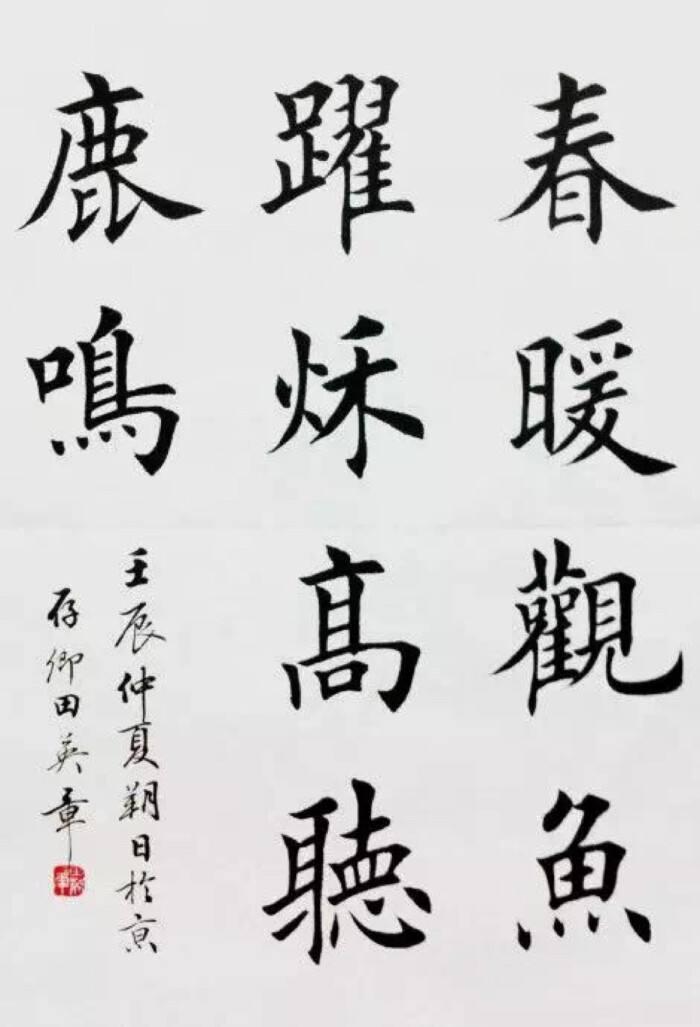 春暖觀魚
躍秌髙聽
鹿鳴
壬辰仲夏朔日於京
存卿田英章